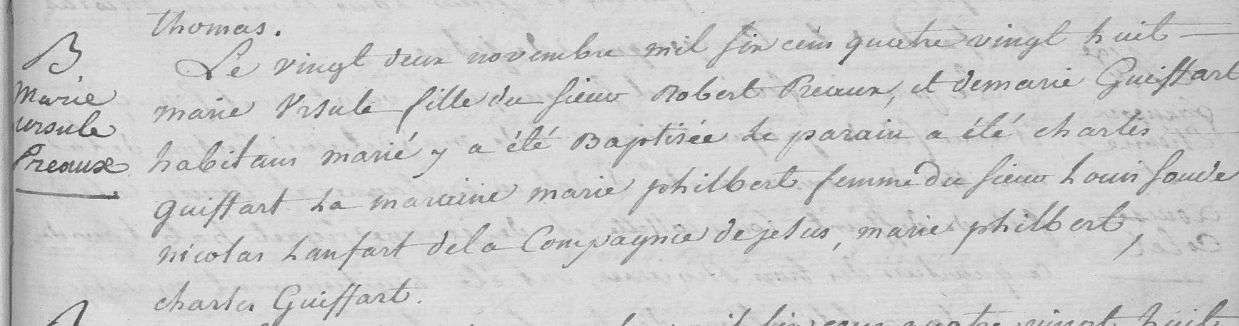 thomas.
B Le vingt deux novembre mil six cens quatre vingt huit
Marie marie Ursule fille du sieur Robert Preaux, et de marie Guiffart
ursule habitans marié y a été Baptisée Le parain a été charles
Preaux Guiffart La maraine marie philbert femme du sieur Louis
nicolas Lanfart de la Compagnie de jesus, marie philbert,
charles Guiffart.